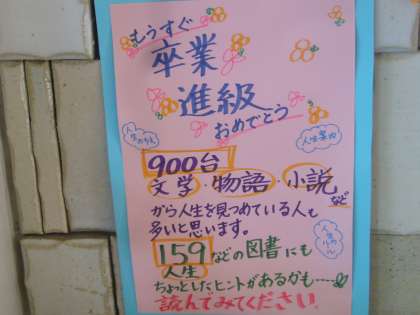 もうすぐ
卒業
進級
おめでとう
人生案内
900台
文学・物語・小説など
から人生を見つめている人も
多いと思います。
159などの図書にも
人生
ちょっとしたヒントがあるかも……
読んでみてください